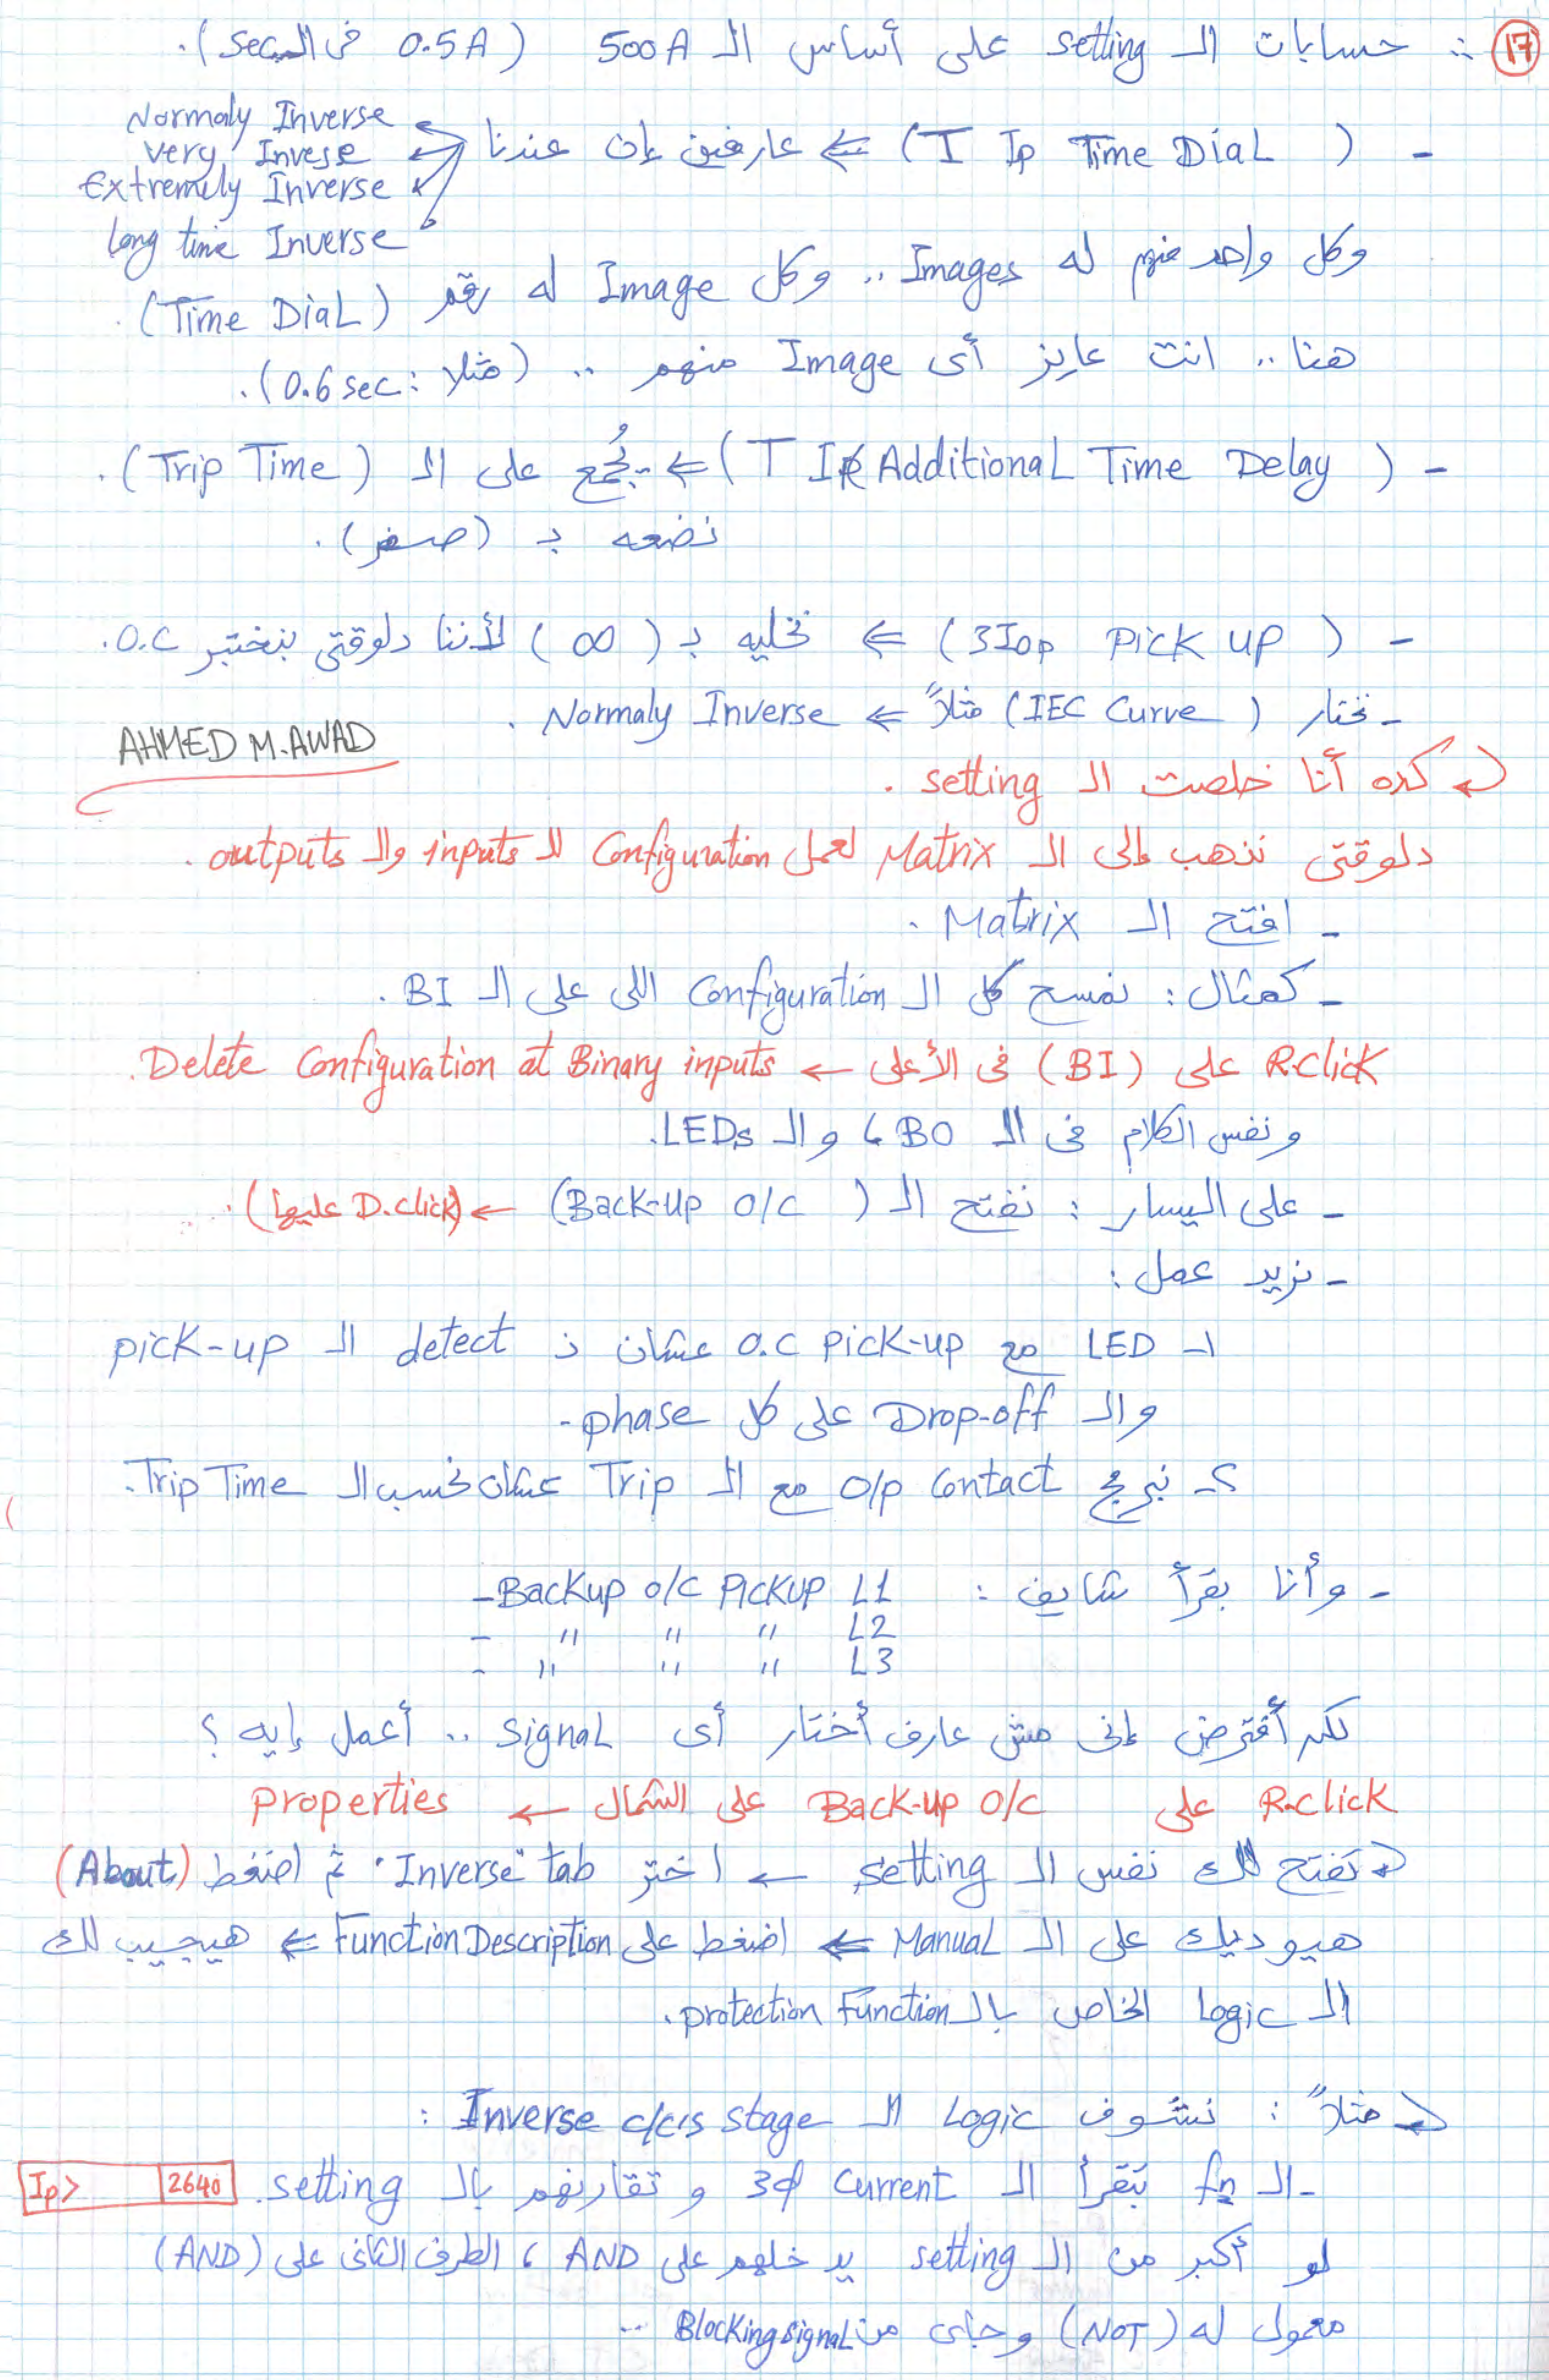 (17) ∴ حسابات الـ setting على أساس الـ 500 A (0.5 A فى الـ sec).
- (T Ip Time Dial) ⇐ عارفين إن عندنا
Normaly Inverse
very Invese
Extremely Inverse
long time Inverse
وكل واحد منهم له Images .. وكل Image له رقم (Time Dial).
هنا .. انت عايز أى Image منهم .. (مثلا : 0.6 sec).
- (T Ip Additional Time Delay) ⇐ يُجمع على الـ (Trip Time).
نضعه بـ (صفر).
- (3Iop Pick up) ⇐ نخليه بـ (∞) لأننا دلوقتى بنختبر O.C.
- نختار (IEC Curve) مثلاً ⇐ Normaly Inverse.
AHMED M. AWAD
كده أنا خلصت الـ setting.
دلوقتى نذهب إلى الـ Matrix لعمل Configuration للـ inputs والـ outputs.
- افتح الـ Matrix.
- كمثال : نمسح كل الـ Configuration اللى على الـ BI.
R.click على (BI) فى الأعلى ← Delete Configuration at Binary inputs.
ونفس الكلام فى الـ BO، والـ LEDs.
- على اليسار : نفتح الـ (Back-up o/c) ← (D.click عليها).
- نريد عمل :
1- LED مع O.C Pick-up عشان نـ detect الـ pick-up
والـ Drop-off على كل phase.
2- نبرمج o/p Contact مع الـ Trip عشان نحسب الـ Trip Time.
- وأنا بقرأ شايف : - Backup o/c PickUP L1
- " " " L2
- " " " L3
لكن أفترض إنى مش عارف أختار أى signal .. أعمل إيه ؟
R.click على Back-up o/c على الشمال ← properties
تفتح لك نفس الـ setting ← اختر tab "Inverse" ثم اضغط (About)
هيوديك على الـ Manual ⇐ اضغط على Function Description ⇐ هيجيب لك
الـ Logic الخاص بالـ protection Function.
مثلاً : نشوف الـ Logic الـ Inverse c/cs stage :
- الـ fn تقرأ الـ 3ϕ current و تقارنهم بالـ setting. Ip> 2640
لو أكبر من الـ setting يدخلهم على AND، الطرف التانى على (AND)
معمول له (NOT) وجاى من Blocking signal ..